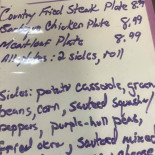 Country Fried Steak Plate 8.99
Chicken Plate 8.49
Meatloaf Plate 8.99
All plates: 2 sides, roll
Sides: potato casserole, green
beans, corn, sauteed squash/
peppers, purple-hull peas,
fried okra, sauteed mixed